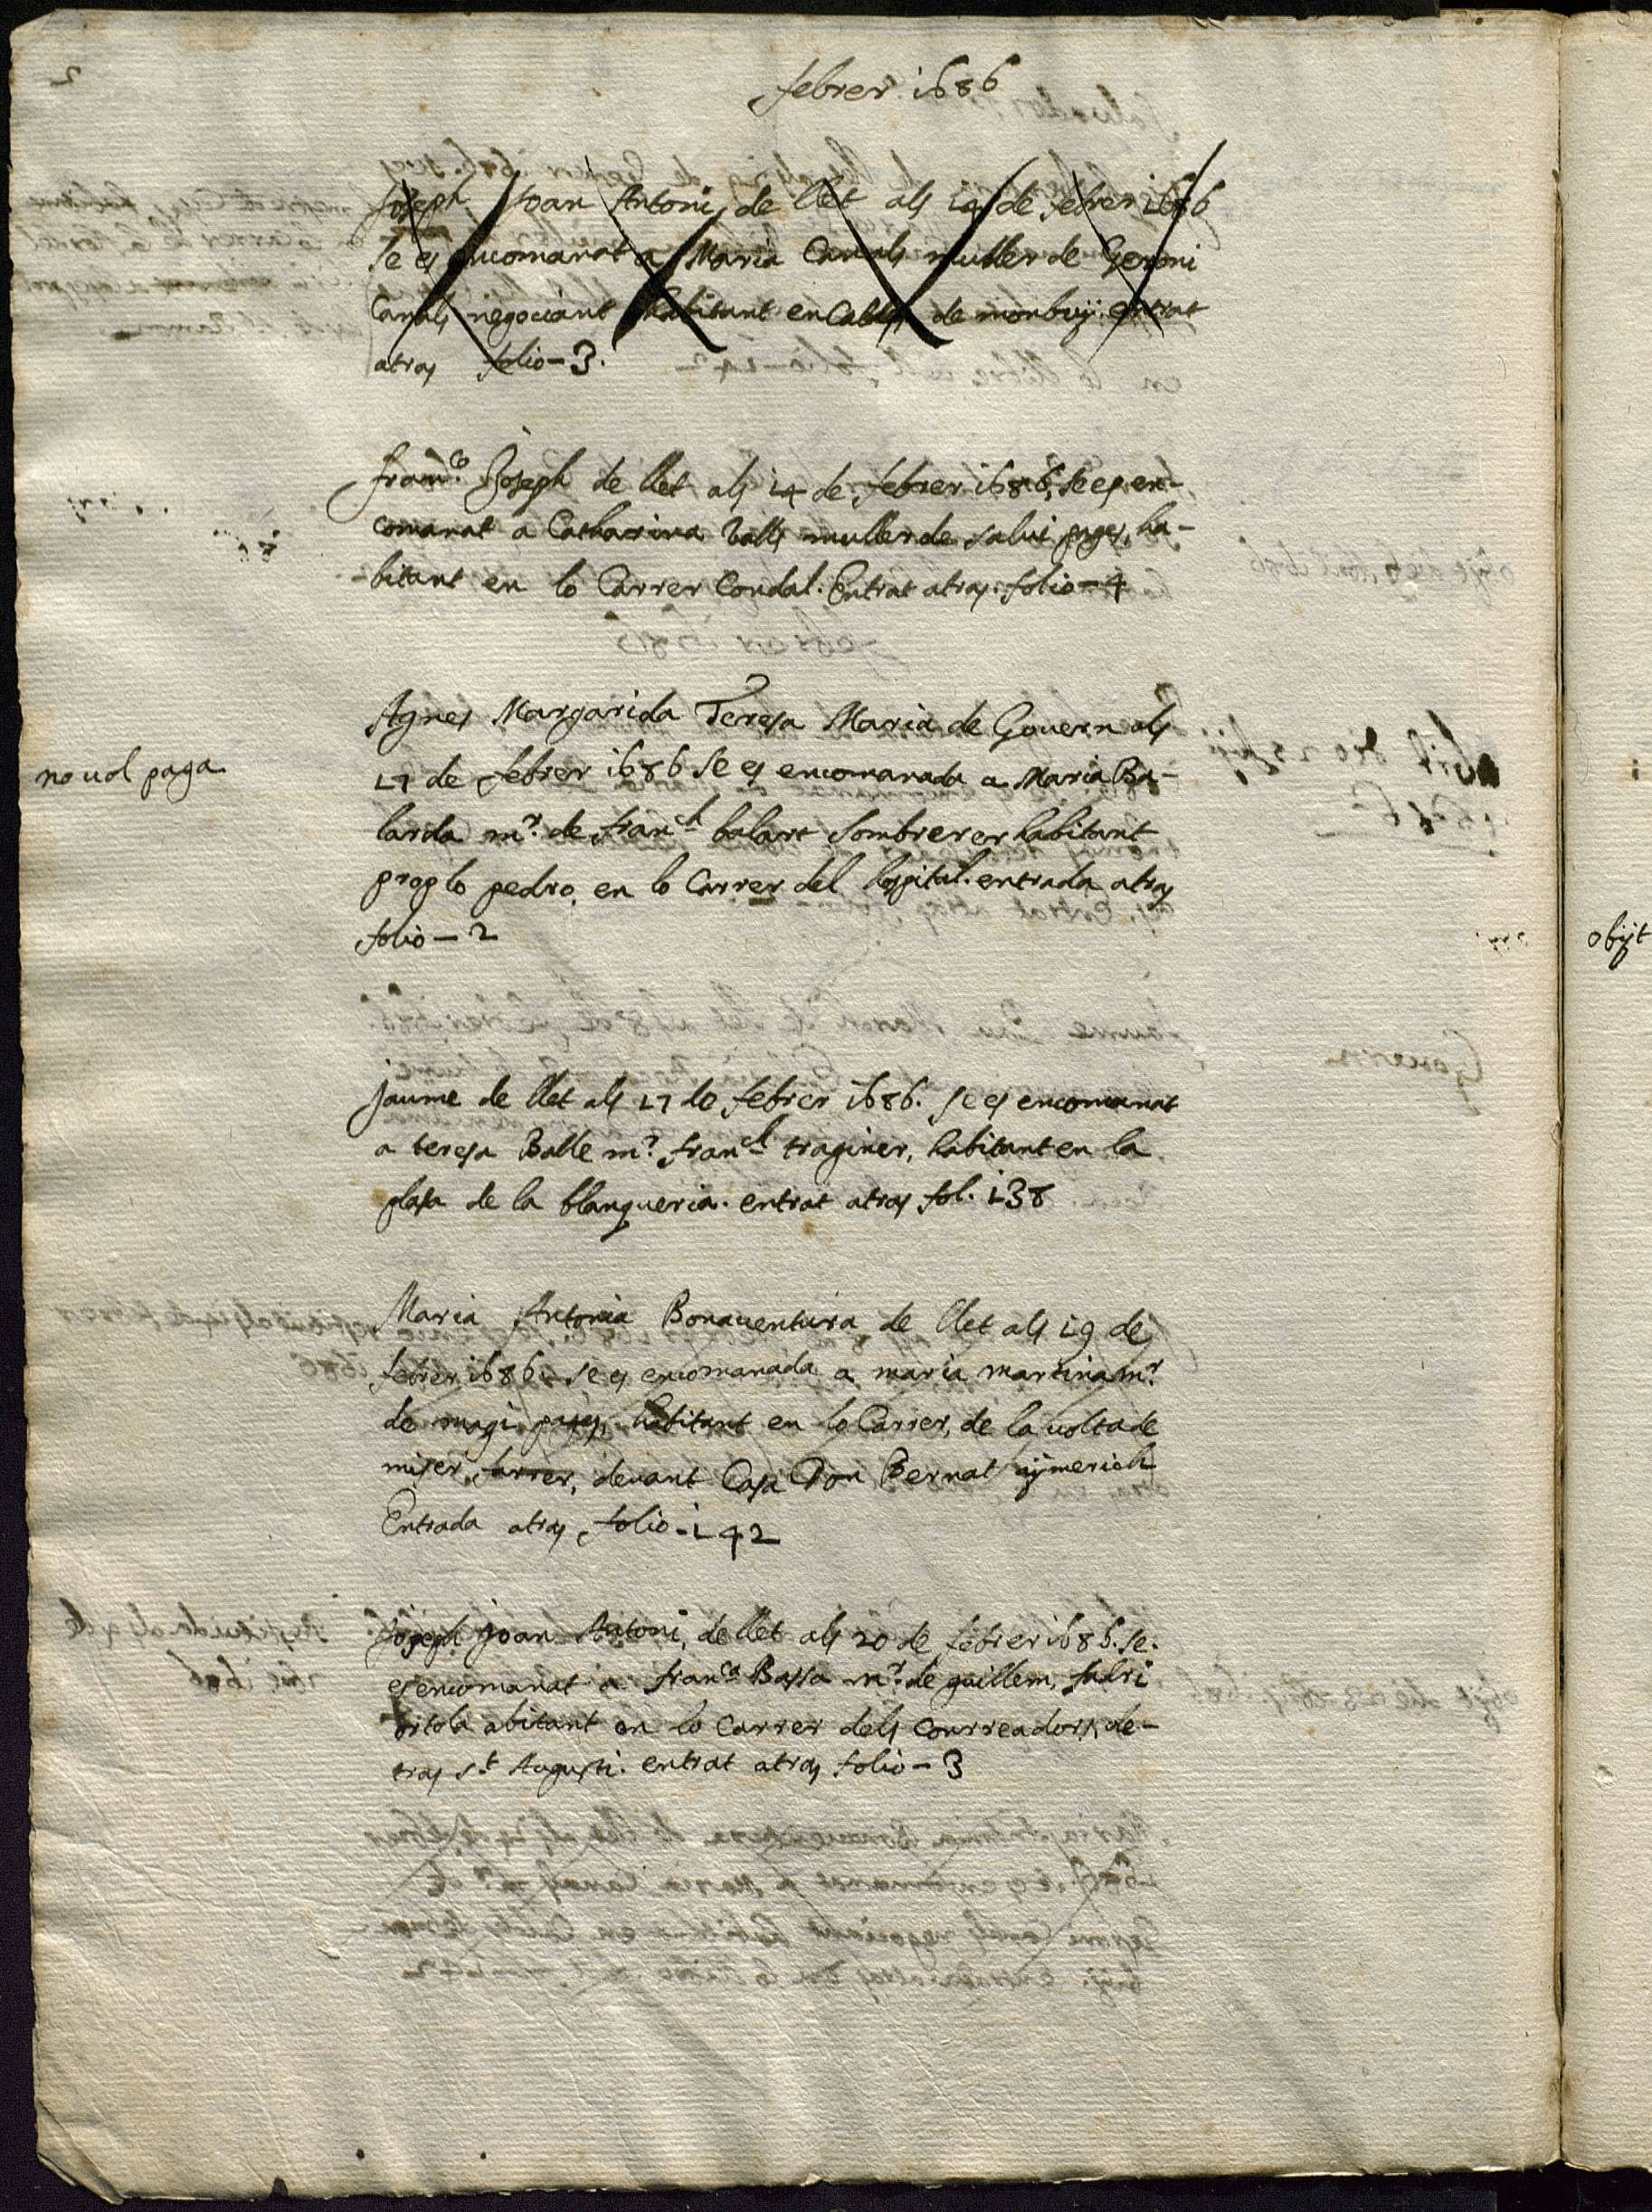 febrer 1686
Joseph Joan Antoni, de llet als 14 de febrer 1686
se es encomanat a Maria Canals muller de Geroni
Canals negociant habitant en Caldes de monbuy. entrat
atras folio - 3.
franco. Joseph de llet als 14 de febrer 1686, se es en-
comanat a Catharina Valls muller de salvi pages, ha-
bitant en lo Carrer Condal. Entrat atras. folio - 4
Agnes Margarida Teresa Maria de Govern als
no vol paga
17 de febrer 1686 se es encomanada a Maria Ba-
larda mr. de franch balart sombrerer habitant
prop lo pedro, en lo Carrer del hospital. entrada atras
folio - 2
obijt
Jaume de llet als 17 de febrer 1686. se es encomanat
a teresa Balle mr. franch traginer, habitant en la
plasa de la blanqueria. entrat atras fol. 138
Maria Antonia Bonaventura de llet als 19 de
febrer 1686 se es encomanada a maria martina mr.
de magi pages, habitant en lo Carrer, de la volta de
miser farrer, devant Casa Don Bernat aymerich
Entrada atras folio - 142
Joseph Joan Antoni, de llet als 20 de febrer 1686. se.
es encomanat a franca Bassa mr. de guillem, fadri
ortola abitant en lo Carrer dels Courreadors, de-
tras st Augusti. entrat atras folio - 3